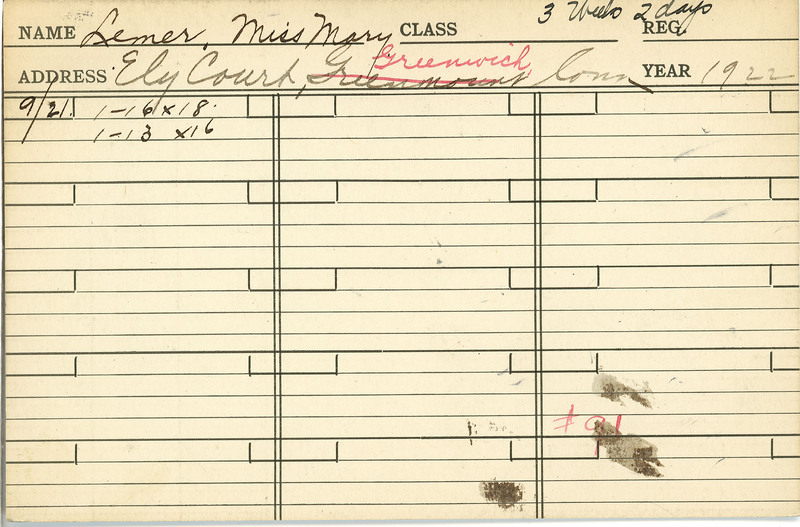 3 Weeks 2 days
NAME Lemer, Miss Mary CLASS REG.
Greenwich
ADDRESS Ely Court, Greenmount Conn YEAR 1922
9/21. 1-16 x 18.
1-13 x 16
#91